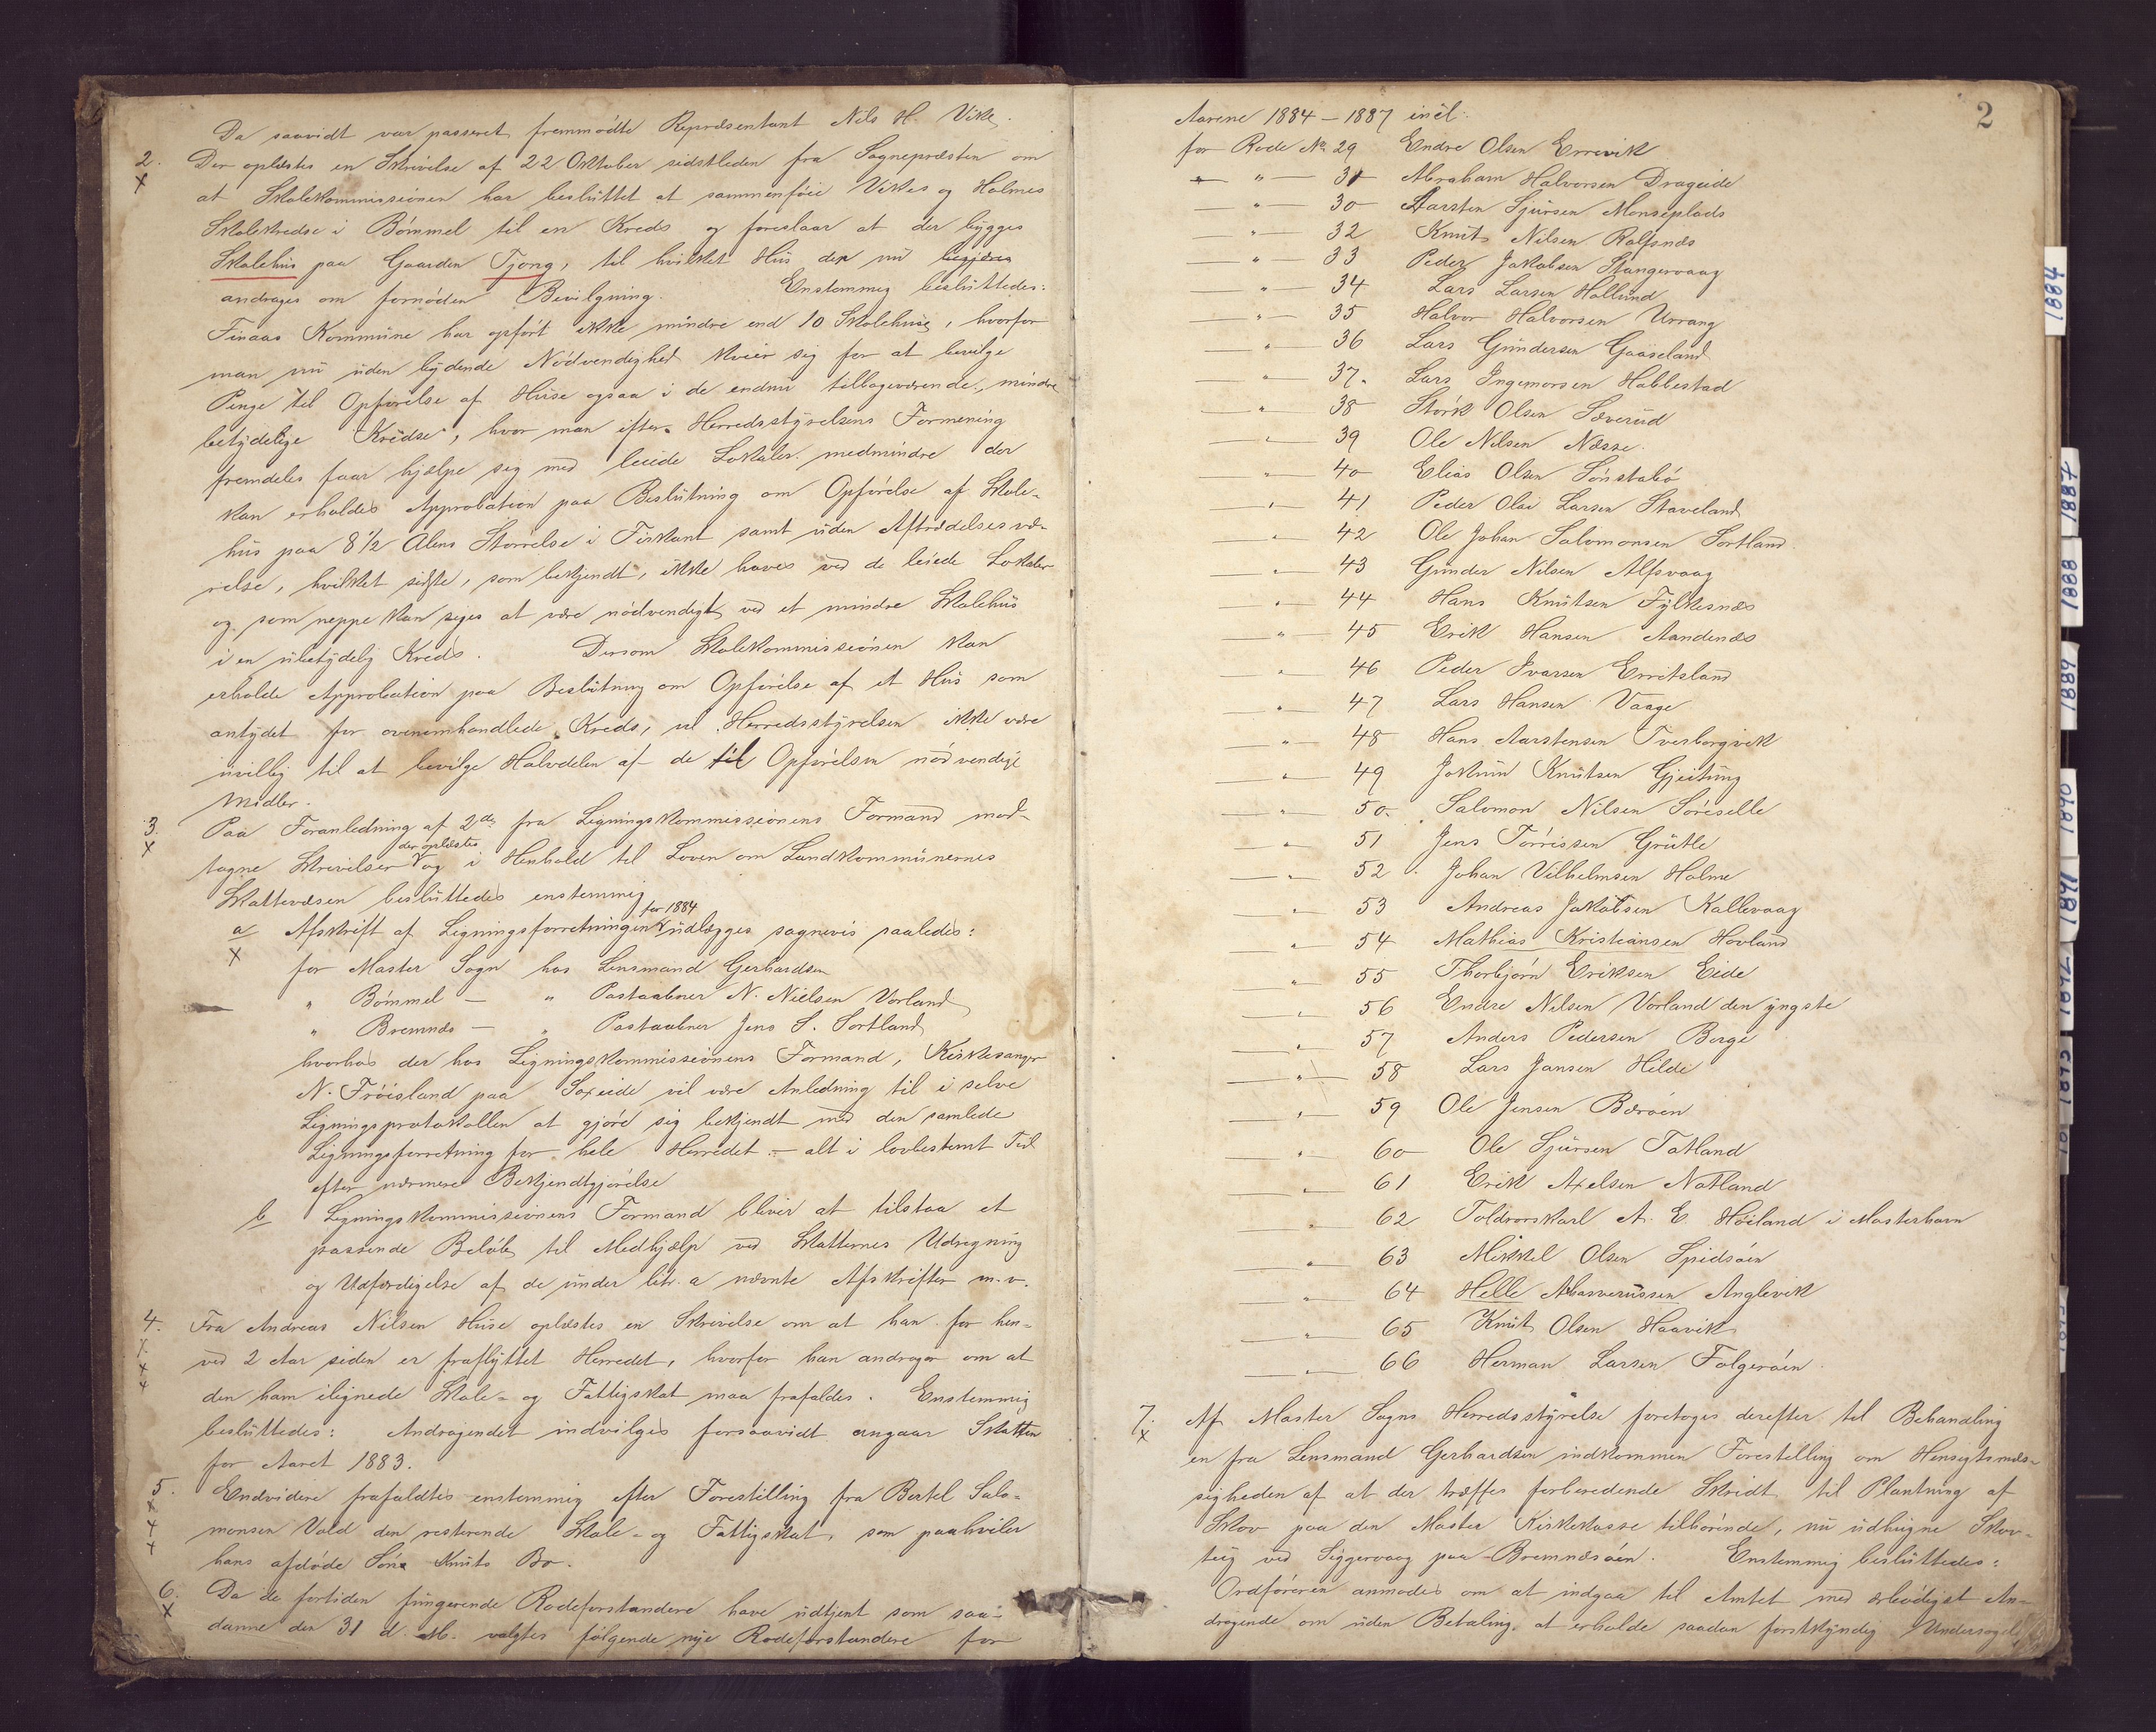 Da saavidt var passeret fremmødte Repræsentant Nils H. Vike.
2. Der oplæstes en Skrivelse af 22 Oktober sidstleden fra Sognepræsten om
x at Skolekommissionen har besluttet at sammenføie Vikes og Holmes
Skolekredse i Bømmel til en Kreds og foreslaar at der bygges
Skolehus paa Gaarden Tjong, til hvilket Hus der nu
andrages om fornøden Bevilgning. Enstemmig besluttedes:
Finaas Kommune har opført ikke mindre end 10 Skolehuse, hvorfor
man nu uden bydende Nødvendighed kvier sig for at bevilge
Penge til Opførelse af Huse ogsaa i de endnu tilbageværende, mindre
betydelige Kredse, hvor man efter Herredsstyrelsens Formening
fremdeles faar hjælpe sig med leiede Lokaler medmindre der
kan erholdes Approbation paa Beslutning om Opførelse af Skole-
hus paa 8 1/2 Alens Størrelse i Firkant samt uden Aftrædelsesvæ-
relse, hvilket sidste, som bekjendt, ikke haves ved de leiede Lokaler
og som neppe kan siges at være nødvendigt ved et mindre Skolehus
i en ubetydelig Kreds. Dersom Skolekommissionen kan
erholde Approbation paa Beslutning om Opførelse af et Hus som
antydet for ovenomhandlede Kreds, vil Herredsstyrelsen ikke være
uvillig til at bevilge Halvdelen af de til Opførelsen nødvendige
Midler.
3. Paa Foranledning af 2de fra Ligningskommissionens Formand mod-
x tagne Skrivelser der oplæstes og i Henhold til Loven om Landkommunernes
Skattevæsen besluttedes enstemmig
a Afskrift af Ligningsforretningen for 1884 udlægges sognevis saaledes:
x for Moster Sogn hos Lensmand Gerhardsen
" Bømmel — " Postaabner N. Nielsen Vorland
" Bremnes — " Postaabner Jens S. Sortland
hvorhos der hos Ligningskommissionens Formand, Kirkesanger
N. Frøisland paa Søreide vil være Anledning til i selve
Ligningsprotokollen at gjøre sig bekjendt med den samlede
Ligningsforretning for hele Herredet – alt i lovbestemt Tid
efter nærmere Bekjendtgjørelse
b Ligningskommissionens Formand bliver at tilstaa et
passende Beløb til Medhjælp ved Skatternes Udregning
og Udfærdigelse af de under litr. a nævnte Afskrifter m.v.
4. Fra Andreas Nilsen Huse oplæstes en Skrivelse om at han for hen-
ved 2 Aar siden er fraflyttet Herredet, hvorfor han andrager om at
den ham ilignede Skole- og Fattigskat maa frafaldes. Enstemmig
besluttedes: Andragendet indvilges forsaavidt angaar Skatten
for Aaret 1883.
5. Endvidere frafaldtes enstemmig efter Forestilling fra Bertel Salo-
monsen Vold den resterende Skole- og Fattigskat, som paahviler
hans afdøde Søns Knuts Bo.
6. Da de fortiden fungerende Rodeforstandere have udtjent som saa-
x danne den 31 d. M. valgtes følgende nye Rodeforstandere for
2
Aarene 1884 – 1887 incl:
for Rode No 29 Endre Olsen Errevik
— " — 31 Abraham Halvorsen Drageide
— " — 30 Aarsten Sjursen Monseplads
— " — 32 Knut Nilsen Rolfsnæs
— " — 33 Peder Jakobsen Stangervaag
— " — 34 Lars Larsen Hollund
— " — 35 Halvor Halvorsen Urrang
— " — 36 Lars Gundersen Gaaseland
— " — 37. Lars Ingemorsen Habbestad
— " — 38 Størk Olsen Sæverud
— " — 39 Ole Nilsen Næsse.
— " — 40 Elias Olsen Sønstabø
— " — 41 Peder Olai Larsen Staveland
— " — 42 Ole Johan Salomonsen Sortland
— " — 43 Gunder Nilsen Alfsvaag
— " — 44 Hans Knutsen Fylkesnæs
— " — 45 Erik Hansen Aandenæs
— " — 46 Peder Ivarsen Erritsland
— " — 47 Lars Hansen Vaage
— " — 48 Hans Aarstensen Tverborgvik
— " — 49 Jokum Knutsen Gjeitung
— " — 50. Salomon Nilsen Søreselle
— " — 51 Jens Tørrissen Grutle
— " — 52. Johan Vilhelmsen Holme
— " — 53 Andreas Jakobsen Kallevaag
— " — 54 Mathias Kristiansen Hovland
— " — 55 Thorbjørn Eriksen Eide
— " — 56 Endre Nilsen Vorland den yngste
— " — 57 Anders Pedersen Berge
— " — 58 Lars Jansen Hilde
— " — 59 Ole Jensen Børøen
— " — 60 Ole Sjursen Totland
— " — 61 Erik Axelsen Notland
— " — 62 Toldrorskarl A. E. Høiland i Mosterhavn
— " — 63 Mikkel Olsen Spidsøen
— " — 64 Helle Ahasverussen Anglevik
— " — 65 Knut Olsen Haavik
— " — 66 Herman Larsen Folgerøen.
7. Af Moster Sogns Herredsstyrelse foretoges derefter til Behandling
x en fra Lensmand Gerhardsen indkommen Forestilling om Hensigtsmæs-
sigheden af at der træffes forberedende Skridt til Plantning af
Skov paa den Moster Kirkekasse tilhørende, nu udhugne Skov-
teig ved Siggervaag paa Bremnesøen. Enstemmig besluttedes:
Ordføreren anmodes om at indgaa til Amtet med ærbødigst An-
dragende om uden Betaling at erholde saadan forstkyndig Undersøgelse
1884
1887
1888
1889
1890
1891
1892
1893